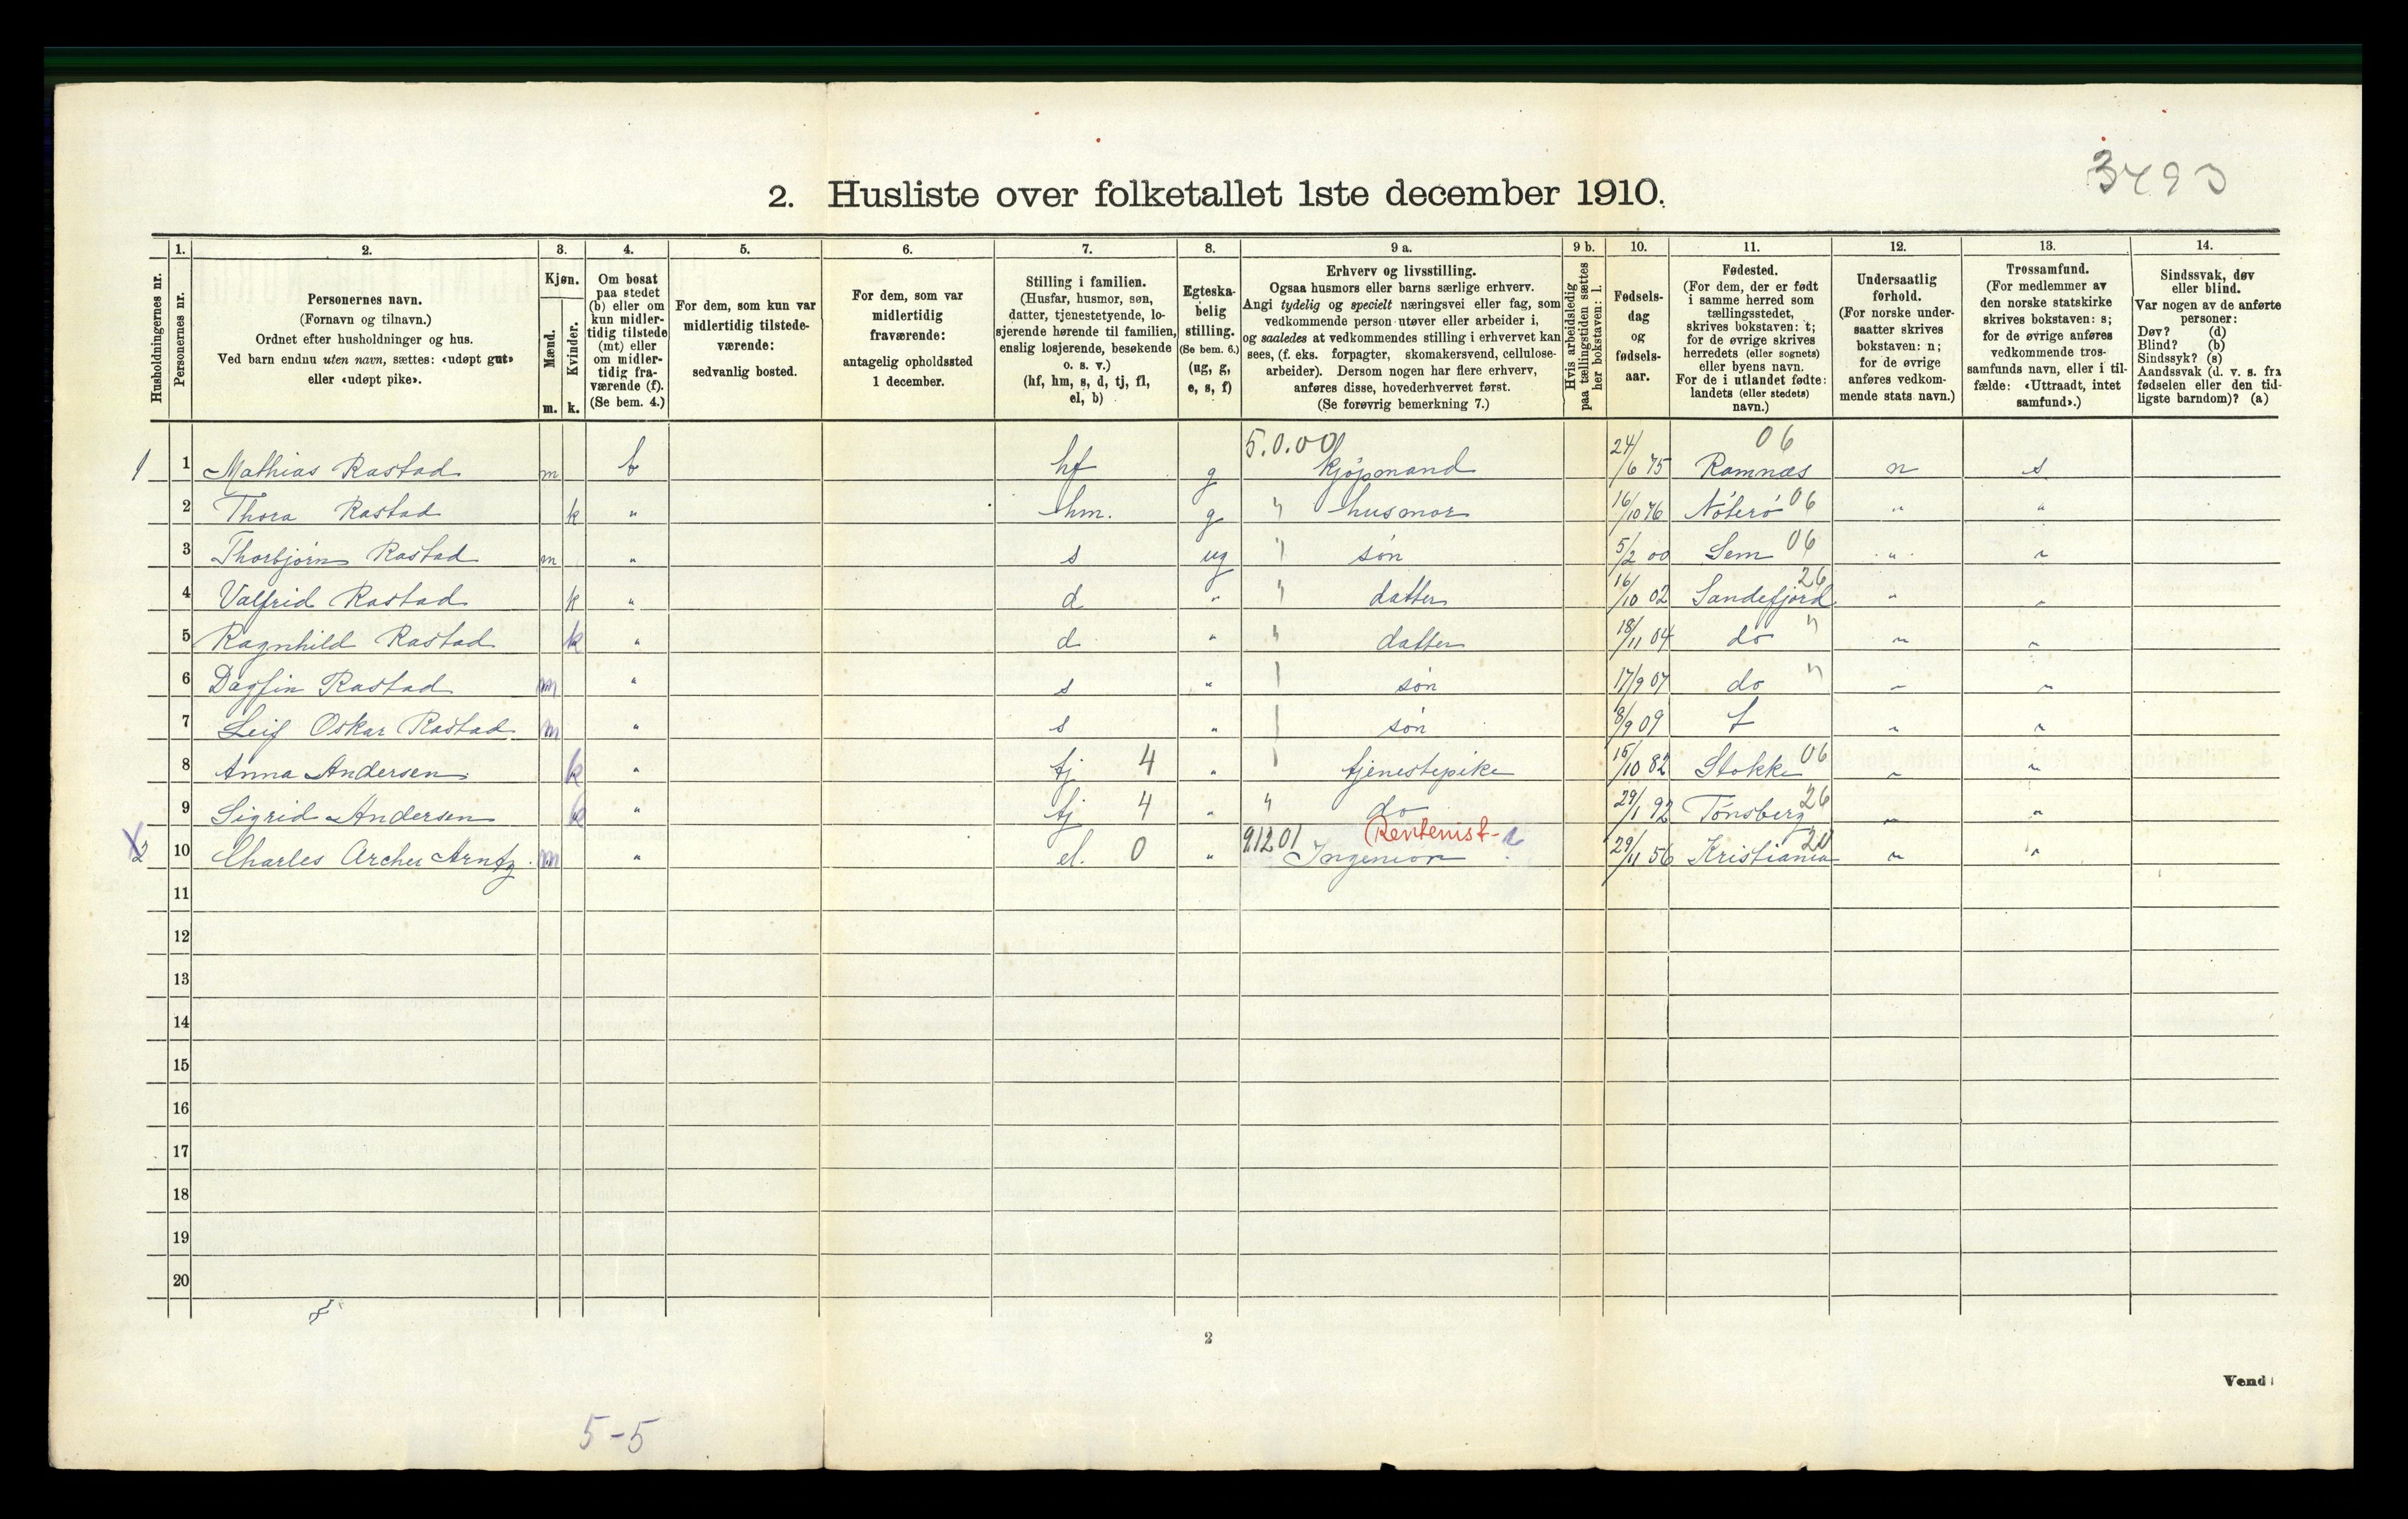 3493
2. Husliste over folketallet 1ste december 1910.
Husholdningernes nr.
1.
Personernes nr.
2.
Personernes navn.
(Fornavn og tilnavn.)
Ordnet efter husholdninger og hus.
Ved barn endnu uten navn, sættes: «udøpt gut»
eller «udøpt pike».
3.
Kjøn.
Mænd.
Kvinder.
m. k.
4.
Om bosat
paa stedet
(b) eller om
kun midler-
tidig tilstede
(mt) eller
om midler-
tidig fra-
værende (f).
(Se bem. 4.)
5.
For dem, som kun var
midlertidig tilstede-
værende:
sedvanlig bosted.
6.
For dem, som var
midlertidig
fraværende:
antagelig opholdssted
1 december.
7.
Stilling i familien.
(Husfar, husmor, søn,
datter, tjenestetyende, lo-
sjerende hørende til familien,
enslig losjerende, besøkende
o. s. v.)
(hf, hm, s, d, tj, fl,
el, b)
8.
Egteska-
belig
stilling.
(Se bem. 6.)
(ug, g,
e, s, f)
9 a.
Erhverv og livsstilling.
Ogsaa husmors eller barns særlige erhverv.
Angi tydelig og specielt næringsvei eller fag, som
vedkommende person utøver eller arbeider i,
og saaledes at vedkommendes stilling i erhvervet kan
sees, (f. eks. forpagter, skomakersvend, cellulose-
arbeider). Dersom nogen har flere erhverv,
anføres disse, hovederhvervet først.
(Se forøvrig bemerkning 7.)
9 b.
Hvis arbeidsledig
paa tællingstiden sættes
her bokstaven: l.
10.
Fødsels-
dag
og
fødsels-
aar.
11.
Fødested.
(For dem, der er født
i samme herred som
tællingsstedet,
skrives bokstaven: t;
for de øvrige skrives
herredets (eller sognets)
eller byens navn.
For de i utlandet fødte:
landets (eller stedets)
navn.)
12.
Undersaatlig
forhold.
(For norske under-
saatter skrives
bokstaven: n;
for de øvrige
anføres vedkom-
mende stats navn.)
13.
Trossamfund.
(For medlemmer av
den norske statskirke
skrives bokstaven: s;
for de øvrige anføres
vedkommende tros-
samfunds navn, eller i til-
fælde: «Uttraadt, intet
samfund».)
14.
Sindssvak, døv
eller blind.
Var nogen av de anførte
personer:
Døv? (d)
Blind? (b)
Sindssyk? (s)
Aandssvak (d. v. s. fra
fødselen eller den tid-
ligste barndom)? (a)
1 1 Mathias Rastad m b hf g 5.0.00 kjøpmand 24/6 75 Ramnæs 06 n s
2 Thora Rastad k " hm. g " husmor 16/10 76 Nøterø 06 " "
3 Thorbjørn Rastad m " s ug " søn 5/2 00 Sem 06 " "
4 Valfrid Rastad k " d " " datter 16/10 02 Sandefjord 26 " "
5 Ragnhild Rastad k " d " " datter 18/11 04 do " " "
6 Dagfin Rastad m " s " " søn 17/9 07 do " " "
7 Leif Oskar Rastad m " s " " søn 8/9 09 t " "
8 Anna Andersen k " tj 4 " " tjenestepike 15/10 82 Stokke 06 " "
9 Sigrid Andersen k " tj 4 " " do 29/1 92 Tønsberg 26 " "
2 10 Charles Archer Arntz m " el. 0 " 91201 Rentenist- Ingeniør 29/11 56 Kristiania 20 " "
11
12
13
14
15
16
17
18
19
20
2
Vend
5-5